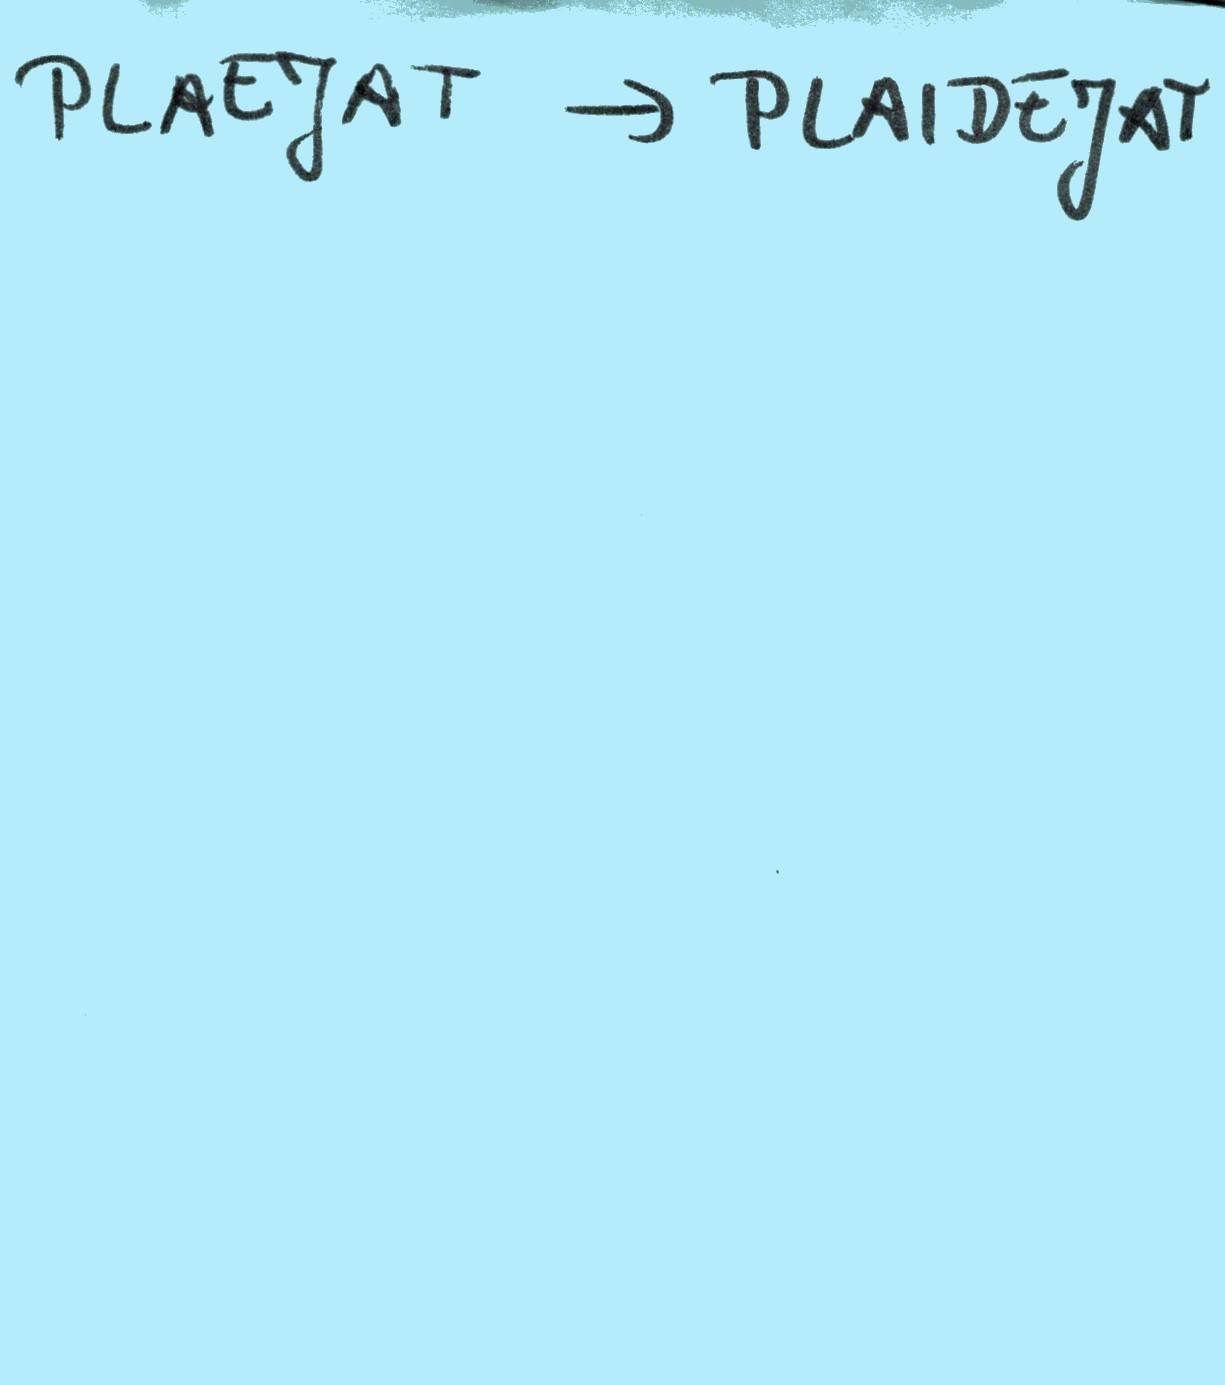 PLAEJAT → PLAIDEJAT